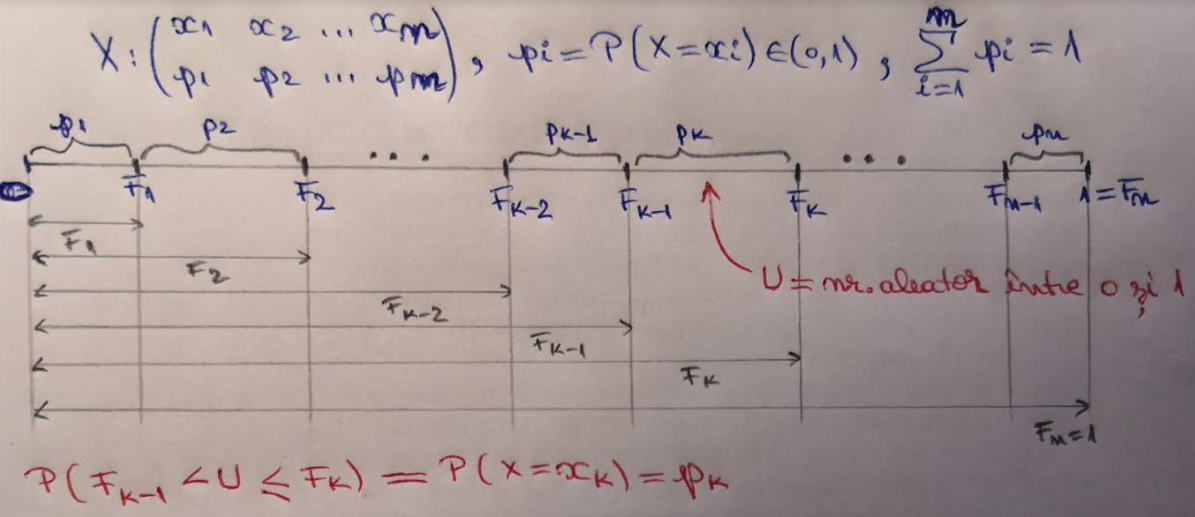 X: (x1 x2 ... xn
p1 p2 ... pn), pi = P(X=xi) ∈ (0,1), n∑i=1 pi = 1
p1 p2 ... pk-1 pk ... pn
0 F1 F2 Fk-2 Fk-1 Fk Fn-1 1=Fn
F1
F2
U = nr. aleator între 0 și 1
Fk-2
Fk-1
Fk
Fn=1
P(Fk-1 < U ≤ Fk) = P(X=xk) = pk